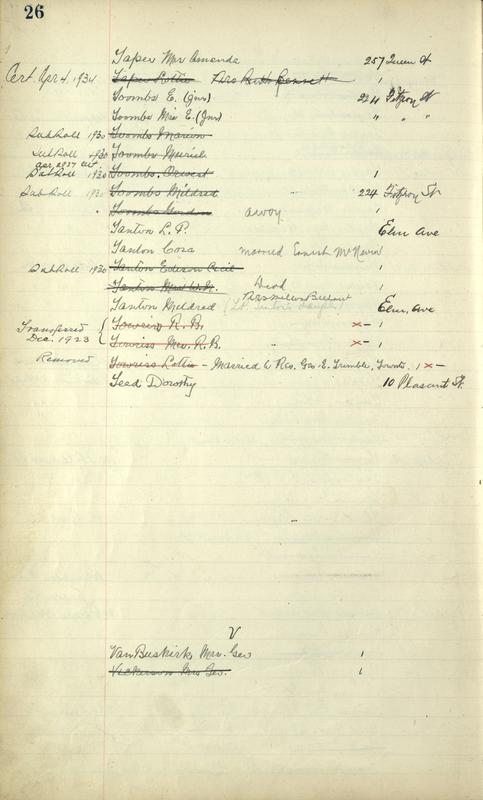 26
Taper Mrs Amanda 257 Queen St
Cert. Apr 4, 1934 Taper Lottie Mrs Beth Bennett "
Toombs E. (Jnr) 224 Fitzroy St
Toombs Mrs E. (Jnr) " " "
Sub Roll 1930 Toombs Marion
Sub Roll 1930 Toombs Muriel
Sub Roll 1930 Toombs, "
Sub Roll 1930 Toombs Mildred 224 Fitzroy St.
" Toombs Gordon away
Tanton L. P. Elm Ave
Tanton Cora married Ernest McNevin "
Sub Roll 1930 Tanton Edison Cecil "
Tanton Mrs Dead "
Tanton Mildred Elm, Ave
Transferred Dec. 1923 { Towriss R. B. x – "
Towriss Mrs. R. B. " x – "
Removed Towriss Lottie – Married to Res. Geo. E. Trimble, Toronto. " x –
Teed Dorothy 10 Pleasant St.
V
Van Buskirk, Mrs. Geo "
Vickerson Mrs Geo. "